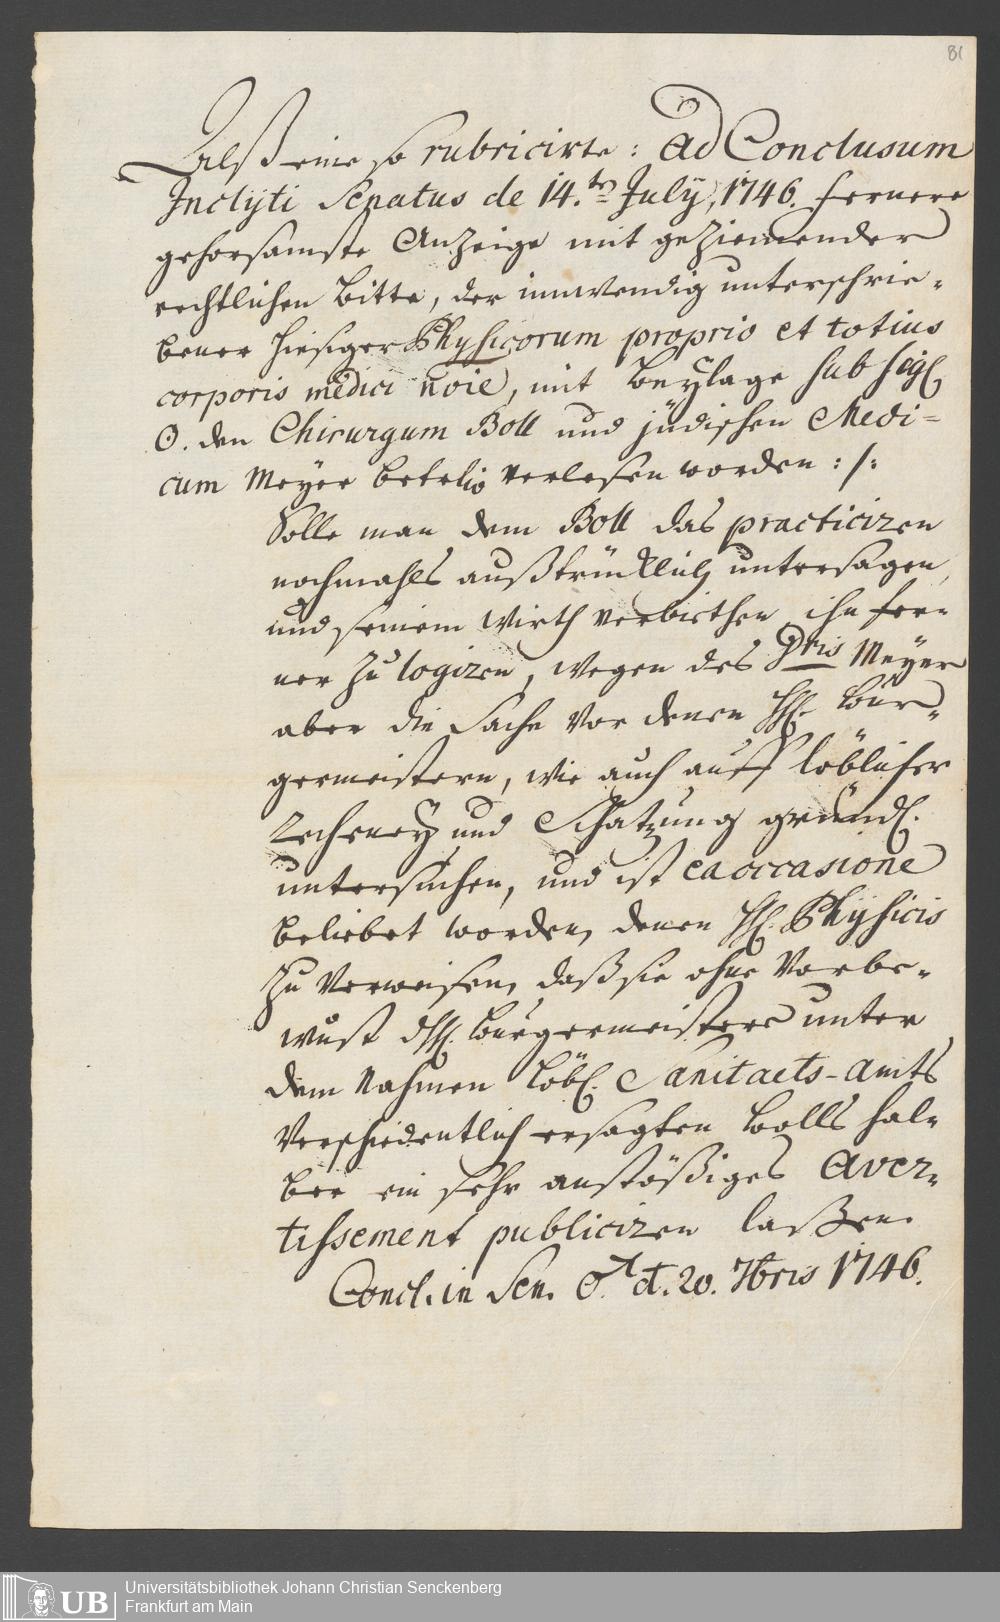 81
Alß eine so rubricirte: Ad Conclusum
Inclyti Senatus de 14.ten July, 1746. fernere
gehorsamste Anzeige mit geziemender
rechtlichen Bitte, der innwendig unterschrie-
bener hiesiger Physicorum proprio et totius
corporis medici noie, mit Beylage sub sigl
O. den Chirurgum Boll und jüdischen Medi-
cum Meyer betrfd verlesen worden :/:
Solle man dem Boll das practiciren
nochmahls außtrücklich untersagen,
und seinem Wirth verbiethen ihn fer-
ner zu logiren, wegen des Dris Meyer
aber die Sache vor denen HH. Bur-
germeistern, wie auch auff löblicher
Rechney und Schatzung gründl.
untersuchen, und ist ea occasione
beliebet worden, denen HH. Physicis
zu verweisen, daß sie ohne Vorbe-
wust dHH. Burgermeistere unter
dem Nahmen Löbl. Sanitaets-Amts
verschiedentlich ersagten Bolls hal-
ber ein sehr anstößiges Aver-
tissement publiciren laßen.
Concl. in Sen. d. 20. 7bris 1746.
UB
Universitätsbibliothek Johann Christian Senckenberg
Frankfurt am Main